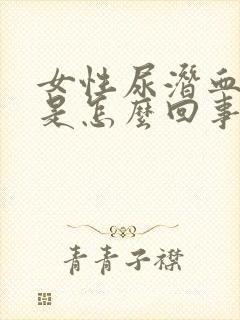 女性尿潛血
是怎麼回事
青青子襟